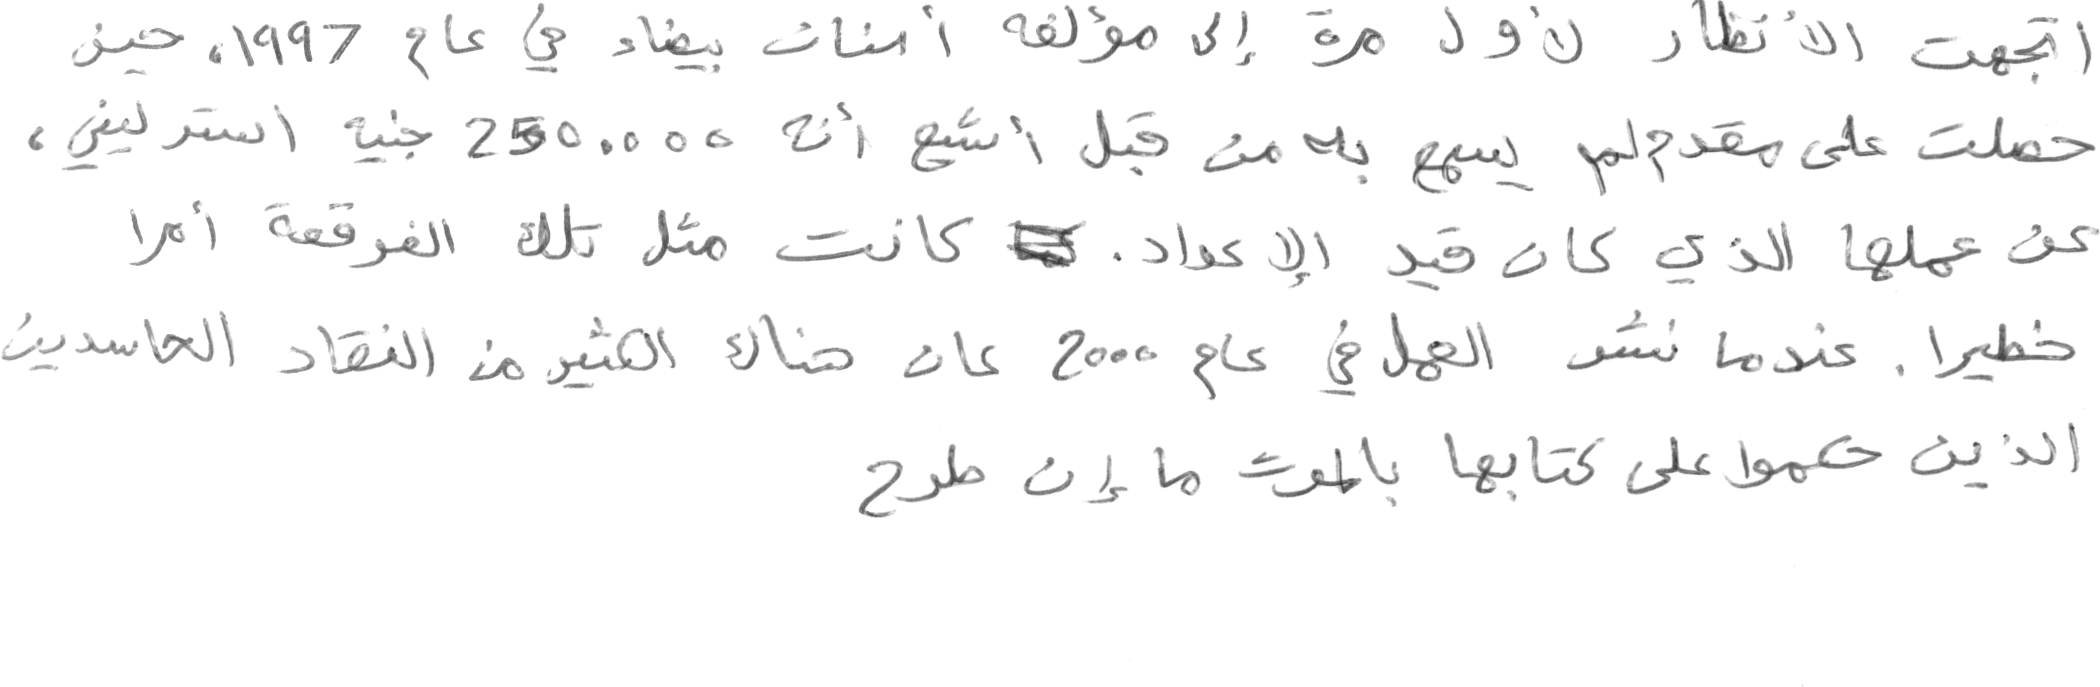 اتجهت الأنظار لأول مرة إلى مؤلفه أسنان بيضاء في عام 1997، حين
حصلت على مقدم لم يسمع به من قبل أشيع أنه 250.000 جنيه استرليني،
عن عملها الذي كان قيد الإعداد. كانت مثل تلك الفرقعة أمرا
خطيرا. عندما نشر العمل في عام 2000 كان هناك الكثير من النقاد الحاسدين
الذين حكموا على كتابها بالموت ما إن طرح